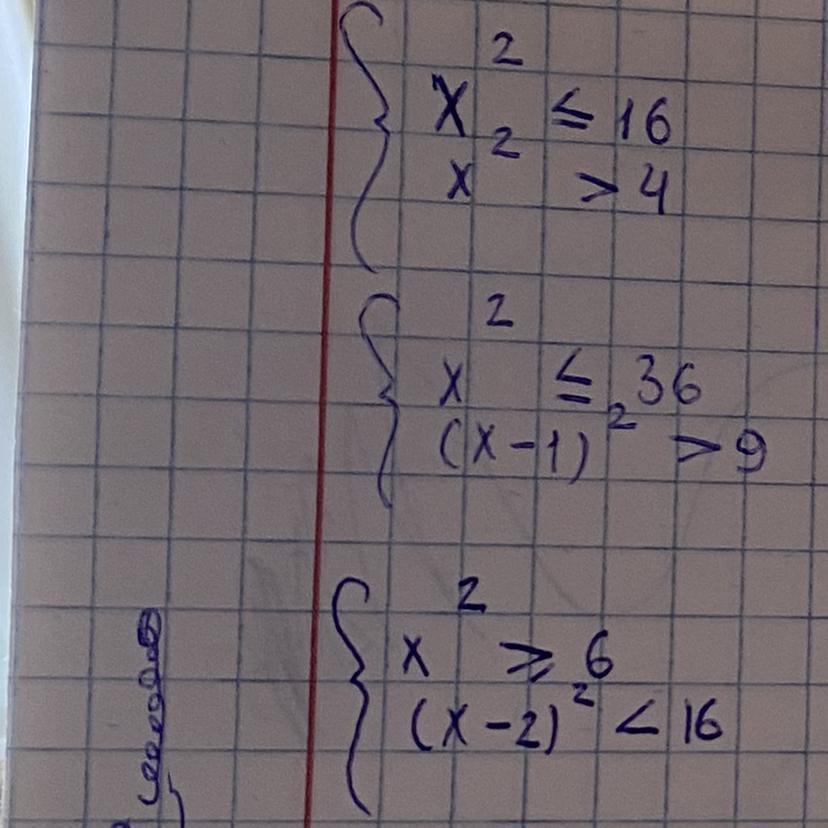 x² ≤ 16
x² > 4
x² ≤ 36
(x-1)² > 9
x² ≥ 6
(x-2)² < 16